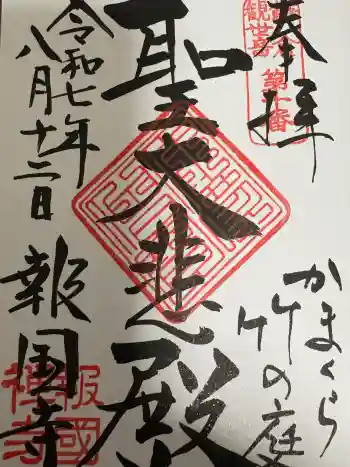 奉拝
かまくら
竹の庭
聖大悲殿
令和七年
八月十二日
報国寺
報國
禅寺